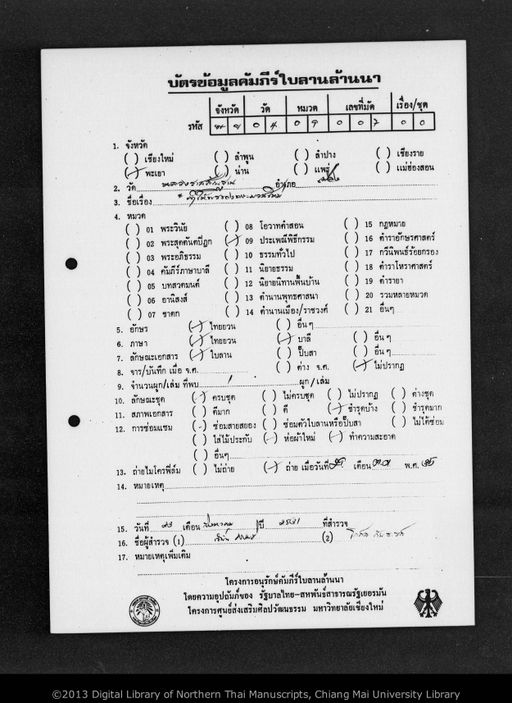 บัตรข้อมูลคัมภีร์ใบลานล้านนา
จังหวัด วัด หมวด เลขที่มัด เรื่อง/ชุด
รหัส พ ย ๐ ๔ ๐ ๙ ๐ ๐ ๐ ๐
1. จังหวัด
( ) เชียงใหม่ ( ) ลำพูน ( ) ลำปาง ( ) เชียงราย
(/) พะเยา ( ) น่าน ( ) แพร่ ( ) แม่ฮ่องสอน
2. วัด อำเภอ เมือง
3. ชื่อเรื่อง
4. หมวด
( ) 01 พระวินัย ( ) 08 โอวาทคำสอน ( ) 15 กฎหมาย
( ) 02 พระสุตตันตปิฎก (/) 09 ประเพณีพิธีกรรม ( ) 16 ตำรายักษรศาสตร์
( ) 03 พระอภิธรรม ( ) 10 ธรรมทั่วไป ( ) 17 กวีนิพนธ์ร้อยกรอง
( ) 04 คัมภีร์ภาษาบาลี ( ) 11 นิยายธรรม ( ) 18 ตำราโหราศาสตร์
( ) 05 บทสวดมนต์ ( ) 12 นิยายนิทานพื้นบ้าน ( ) 19 ตำรายา
( ) 06 อานิสงส์ ( ) 13 ตำนานพุทธศาสนา ( ) 20 รวมหลายหมวด
( ) 07 ชาดก ( ) 14 ตำนานเมือง/ราชวงศ์ ( ) 21 อื่นๆ
5. อักษร (/) ไทยยวน ( ) อื่นๆ
6. ภาษา (/) ไทยยวน (/) บาลี ( ) อื่นๆ
7. ลักษณะเอกสาร (/) ใบลาน ( ) ปั๊บสา ( ) อื่นๆ
8. จาร/บันทึก เมื่อ จ.ศ. ( ) ค่าง จ.ศ. (/) ไม่ปรากฏ
9. จำนวนผูก/เล่ม ที่พบ 1 ผูก/เล่ม
10. ลักษณะชุด (/) ครบชุด ( ) ไม่ครบชุด ( ) ไม่ปรากฏ ( ) ต่างชุด
11. สภาพเอกสาร ( ) ดีมาก ( ) ดี (/) ชำรุดบ้าง ( ) ชำรุดมาก
12. การซ่อมแซม (/) ซ่อมสายสยอง ( ) ซ่อมตัวใบลานหรือปั๊บสา ( ) ไม่ได้ซ่อม
( ) ใส่ไม้ประกับ (/) ห่อผ้าใหม่ (/) ทำความสะอาด
( ) อื่นๆ
13. ถ่ายไมโครฟิล์ม ( ) ไม่ถ่าย (/) ถ่าย เมื่อวันที่ เดือน พ.ศ.
14. หมายเหตุ
15. วันที่ 23 เดือน ปี 2531 ที่สำรวจ
16. ชื่อผู้สำรวจ (1) (2)
17. หมายเหตุเพิ่มเติม
โครงการอนุรักษ์คัมภีร์ใบลานล้านนา
โดยความอุปถัมภ์ของ รัฐบาลไทย-สหพันธ์สาธารณรัฐเยอรมัน
โครงการศูนย์ส่งเสริมศิลปวัฒนธรรม มหาวิทยาลัยเชียงใหม่
©2013 Digital Library of Northern Thai Manuscripts, Chiang Mai University Library